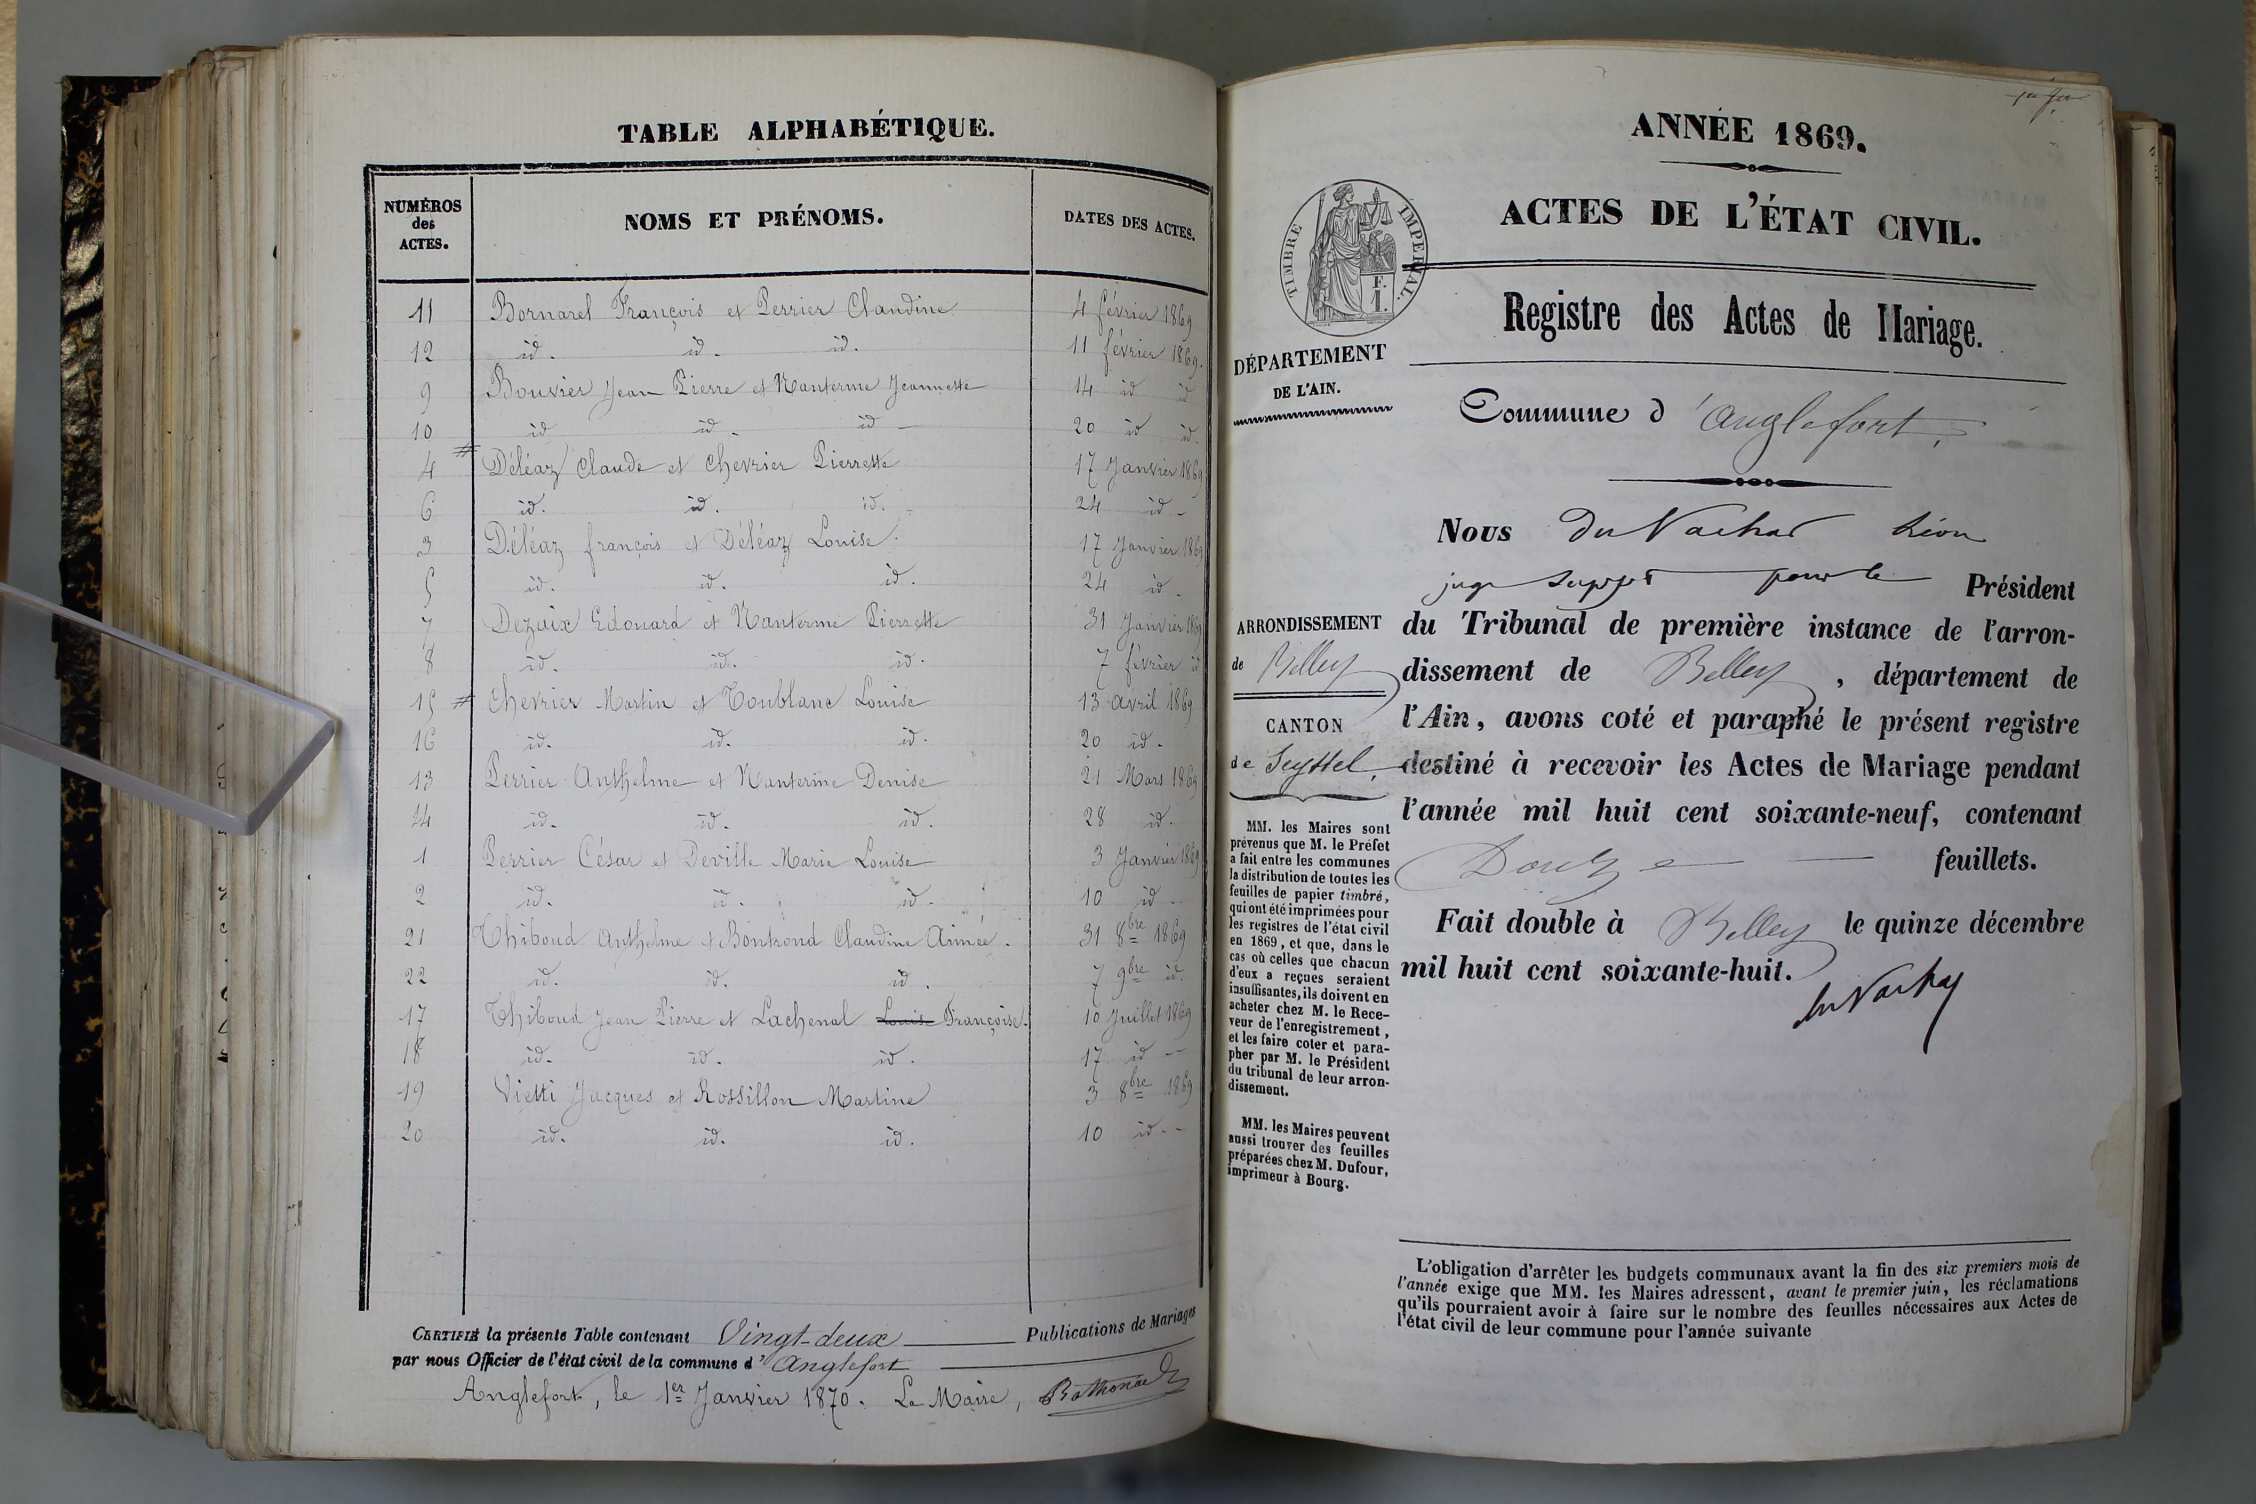 TABLE ALPHABÉTIQUE.
NUMÉROS des ACTES. NOMS ET PRÉNOMS. DATES DES ACTES.
11 Bornarel François et Perrier Claudine 4 février 1869
12 id. id. id. 11 février 1869.
9 Bouvier Jean Pierre et Nanterme Jeannette 14 id id
10 id id id 20 id id.
4 # Déléaz Claude et Chevrier Pierrette 17 Janvier 1869
6 id. id. id. 24 id
3 Déléaz françois et Déléaz Louise. 17 Janvier 1869
5 id. id. id. 24 id.
7 Dezaix Edouard et Nanterme Pierrette 31 Janvier 1869
8 id. id. id. 7 février id
15 # Chevrier Martin et Toublanc Louise 13 avril 1869
16 id. id. id. 20 id.
13 Perrier Anthelme et Nanterme Denise 21 Mars 1869
14 id. id. id. 28 id.
1 Perrier César et Deville Marie Louise 3 Janvier 1869
2 id. id. id. 10 id
21 Thiboud Anthelme et Bontrond Claudine Aimée. 31 8bre 1869
22 id. id. id. 7 9bre id.
17 Thiboud Jean Pierre et Lachenal Louise Françoise. 10 Juillet 1869
18 id. id. id. 17 id
19 Vietti Jacques et Rossillon Martine 3 8bre 1869
20 id. id. id. 10 id
CERTIFIÉ la présente Table contenant Vingt-deux Publications de Mariages
par nous Officier de l'état civil de la commune d'Anglefort
Anglefort, le 1er Janvier 1870. Le Maire,
ANNÉE 1869.
ACTES DE L'ÉTAT CIVIL.
TIMBRE IMPERIAL.
F.
1.
Registre des Actes de Mariage.
DÉPARTEMENT
DE L'AIN.
Commune d'Anglefort.
Nous du Vachat Léon
juge suppt pour le Président
du Tribunal de première instance de l'arron-
dissement de Belley, département de
l'Ain, avons coté et paraphé le présent registre
destiné à recevoir les Actes de Mariage pendant
l'année mil huit cent soixante-neuf, contenant
Douze feuillets.
Fait double à Belley le quinze décembre
mil huit cent soixante-huit.
du Vachat
ARRONDISSEMENT
de Belley
CANTON
de Seyssel.
MM. les Maires sont
prévenus que M. le Préfet
a fait entre les communes
la distribution de toutes les
feuilles de papier timbré,
qui ont été imprimées pour
les registres de l'état civil
en 1869, et que, dans le
cas où celles que chacun
d'eux a reçues seraient
insuffisantes, ils doivent en
acheter chez M. le Rece-
veur de l'enregistrement,
et les faire coter et para-
pher par M. le Président
du tribunal de leur arron-
dissement.
MM. les Maires peuvent
aussi trouver des feuilles
préparées chez M. Dufour,
imprimeur à Bourg.
L'obligation d'arrêter les budgets communaux avant la fin des six premiers mois de
l'année exige que MM. les Maires adressent, avant le premier juin, les réclamations
qu'ils pourraient avoir à faire sur le nombre des feuilles nécessaires aux Actes de
l'état civil de leur commune pour l'année suivante